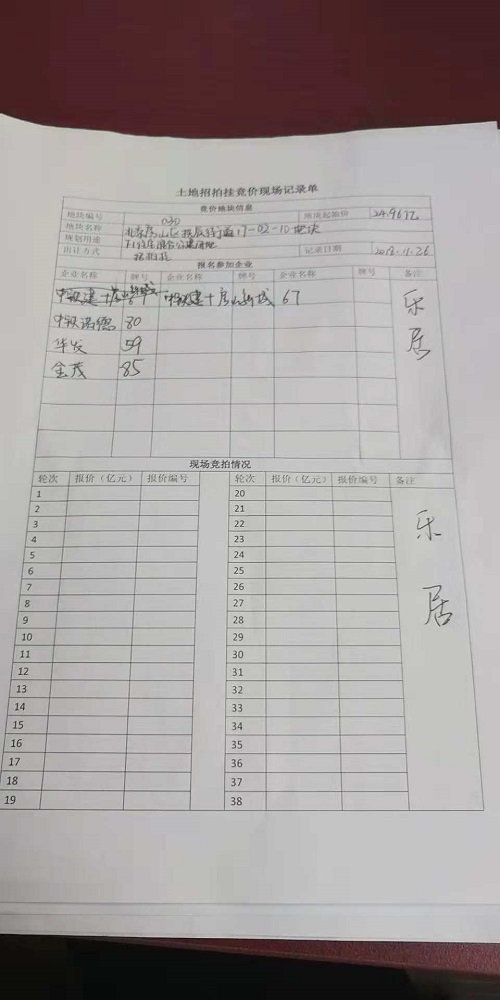 土地招拍挂竞价现场记录单
竞价地块信息
地块编号 030 地块起始价 24.96亿
地块名称 北京房山区拱辰街道17-02-10地块
规划用途 F1住宅混合公建用地
出让方式 招拍挂 记录日期 2018.11.26
报名参加企业
企业名称 牌号 企业名称 牌号 企业名称 牌号 备注
中铁建+房山新城 67
中铁诺德 80
华发 59
金茂 85
乐居
现场竞拍情况
轮次 报价（亿元） 报价编号 轮次 报价（亿元） 报价编号 备注
1 20
2 21
3 22
4 23
5 24
6 25
7 26
8 27
9 28
10 29
11 30
12 31
13 32
14 33
15 34
16 35
17 36
18 37
19 38
乐居